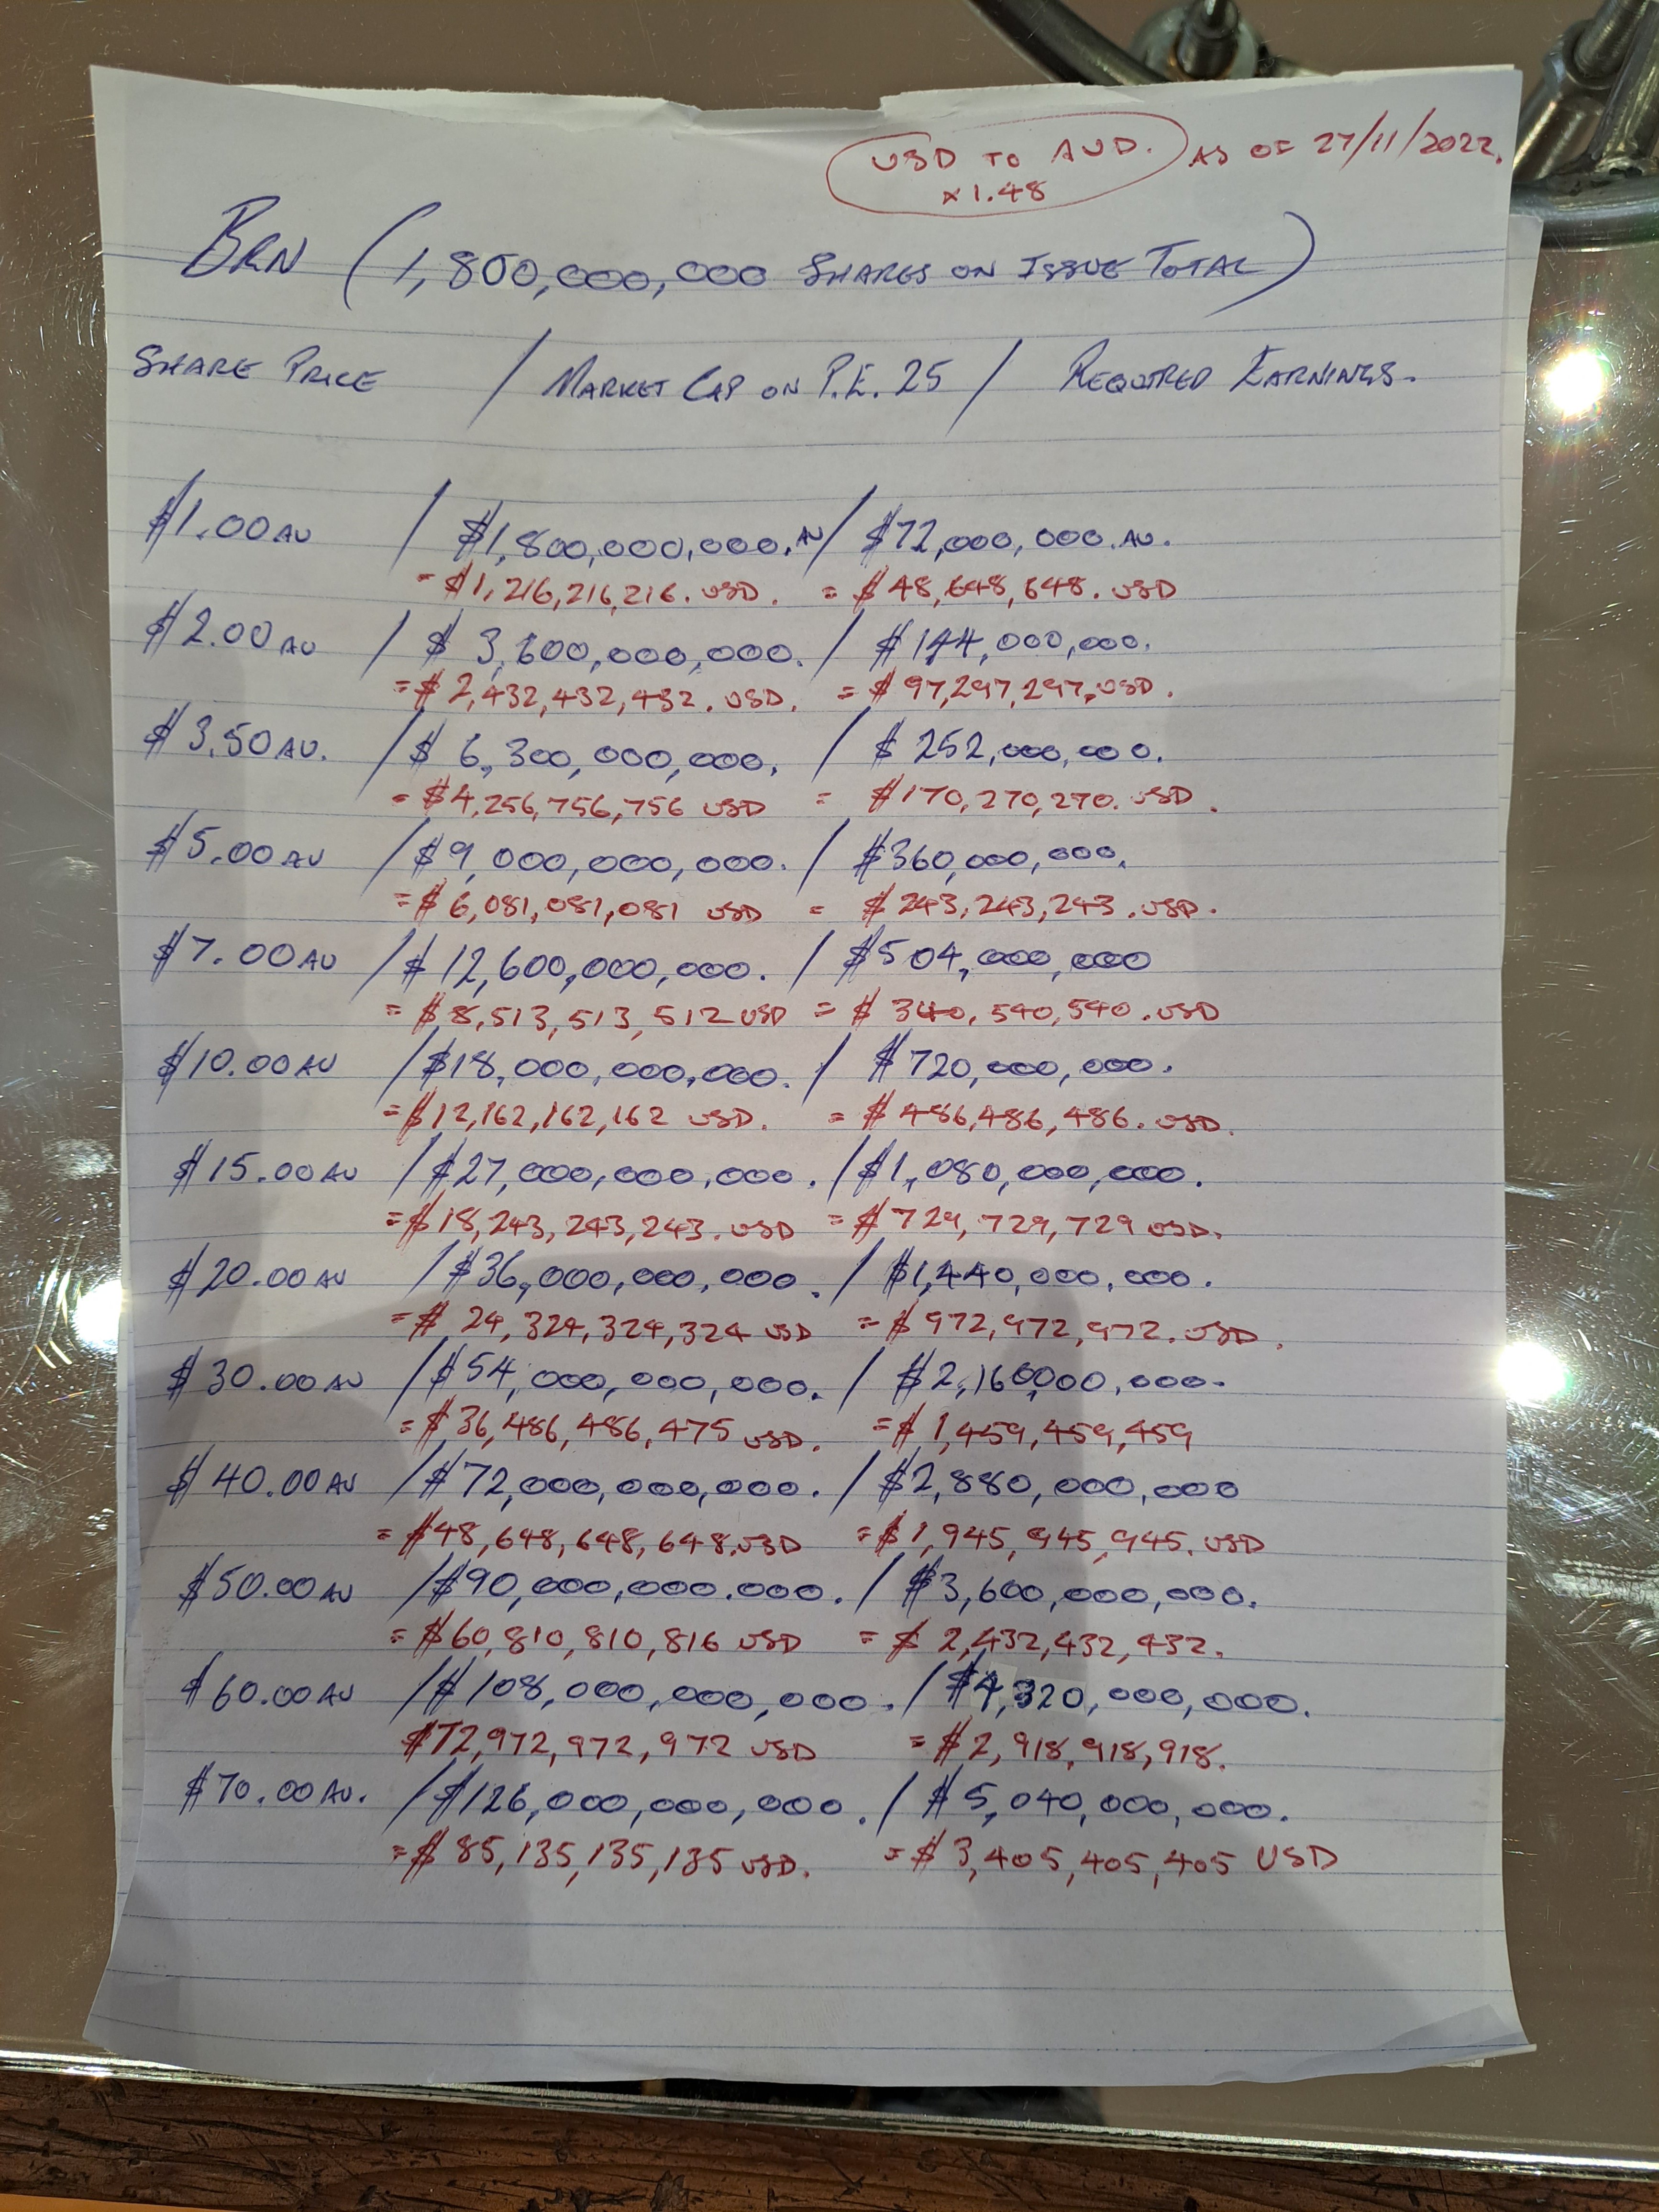 USD TO AUD. AS OF 27/11/2022.
x1.48
BRN (1,800,000,000 SHARES ON ISSUE TOTAL)
SHARE PRICE / MARKET CAP ON P.E. 25 / REQUIRED EARNINGS.
$1.00 AU / $1,800,000,000. AU / $72,000,000. AU.
= $1,216,216,216. USD. = $48,648,648. USD
$2.00 AU / $3,600,000,000. / $144,000,000.
= $2,432,432,432. USD. = $97,297,297. USD.
$3.50 AU. / $6,300,000,000. / $252,000,000.
= $4,256,756,756 USD = $170,270,270. USD.
$5.00 AU / $9,000,000,000. / $360,000,000.
= $6,081,081,081 USD = $243,243,243. USD.
$7.00 AU / $12,600,000,000. / $504,000,000
= $8,513,513,512 USD = $340,540,540. USD
$10.00 AU / $18,000,000,000. / $720,000,000.
= $12,162,162,162 USD. = $486,486,486. USD.
$15.00 AU / $27,000,000,000. / $1,080,000,000.
= $18,243,243,243. USD = $729,729,729 USD.
$20.00 AU / $36,000,000,000. / $1,440,000,000.
= $24,324,324,324 USD = $972,972,972. USD.
$30.00 AU / $54,000,000,000. / $2,160,000,000.
= $36,486,486,475 USD. = $1,459,459,459
$40.00 AU / $72,000,000,000. / $2,880,000,000
= $48,648,648,648. USD = $1,945,945,945. USD
$50.00 AU / $90,000,000.000. / $3,600,000,000.
= $60,810,810,816 USD = $2,432,432,432.
$60.00 AU / $108,000,000,000. / $4,320,000,000.
$72,972,972,972 USD = $2,918,918,918.
$70.00 AU. / $126,000,000,000. / $5,040,000,000.
= $85,135,135,135 USD. = $3,405,405,405 USD